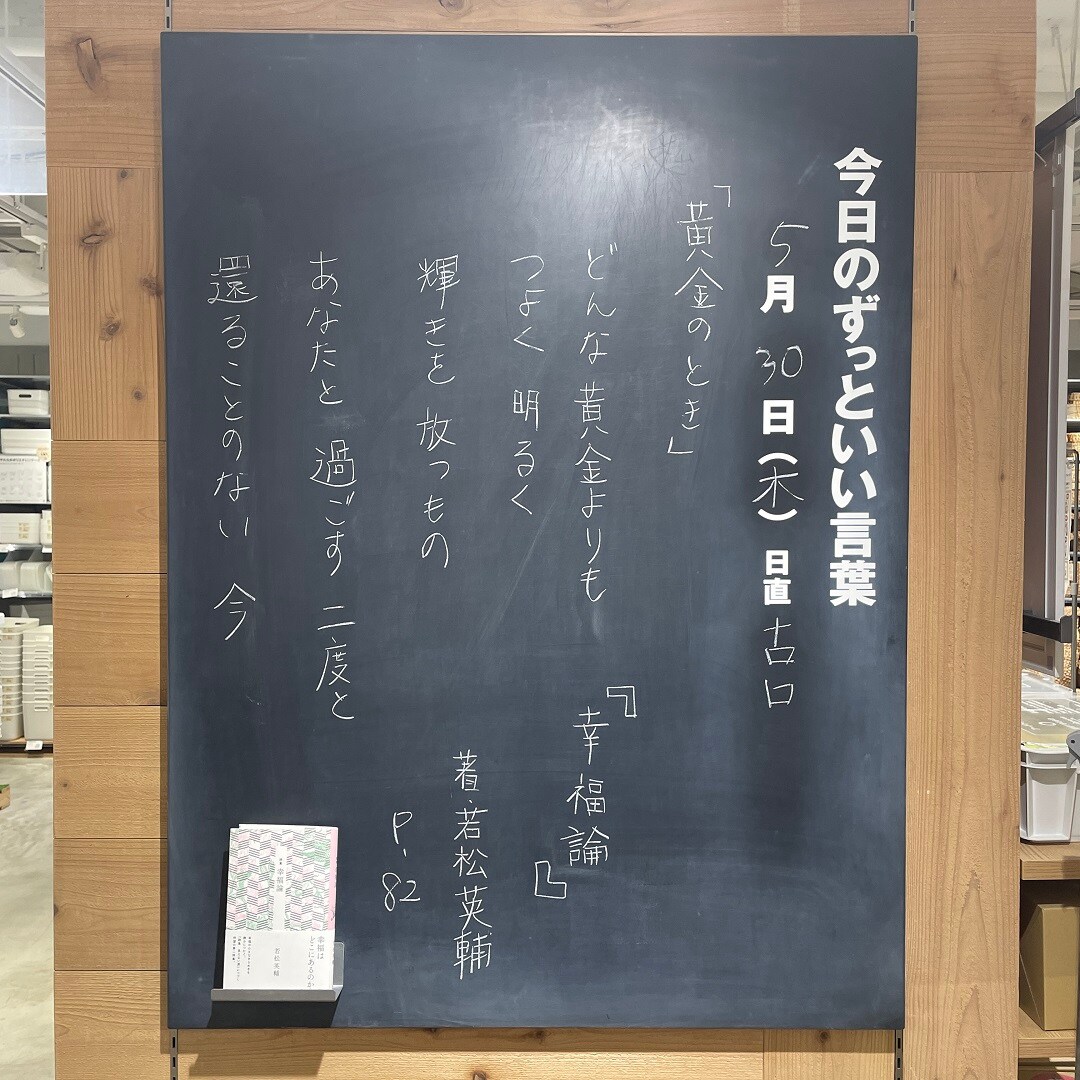 今日のずっといい言葉
5月30日(木) 日直 古口
「黄金のとき」
どんな黄金よりも
つよく 明るく
輝きを 放つもの
あなたと 過ごす 二度と
還ることのない 今
『幸福論』
著・若松英輔
P-82
幸福論
幸福は
どこにあるのか
若松英輔